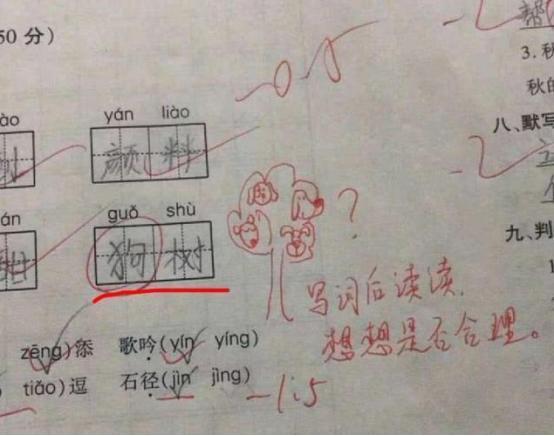 50 分)
帮
-0.5
3. 秋
秋的
ào
yán liào
颜料
八、默写
guǒ shù
狗树
?
写词后读读,
想想是否合理。
九、判
zēng)添 歌吟(yín yíng)
tiāo)逗 石径(jìn jìng)
-1.5